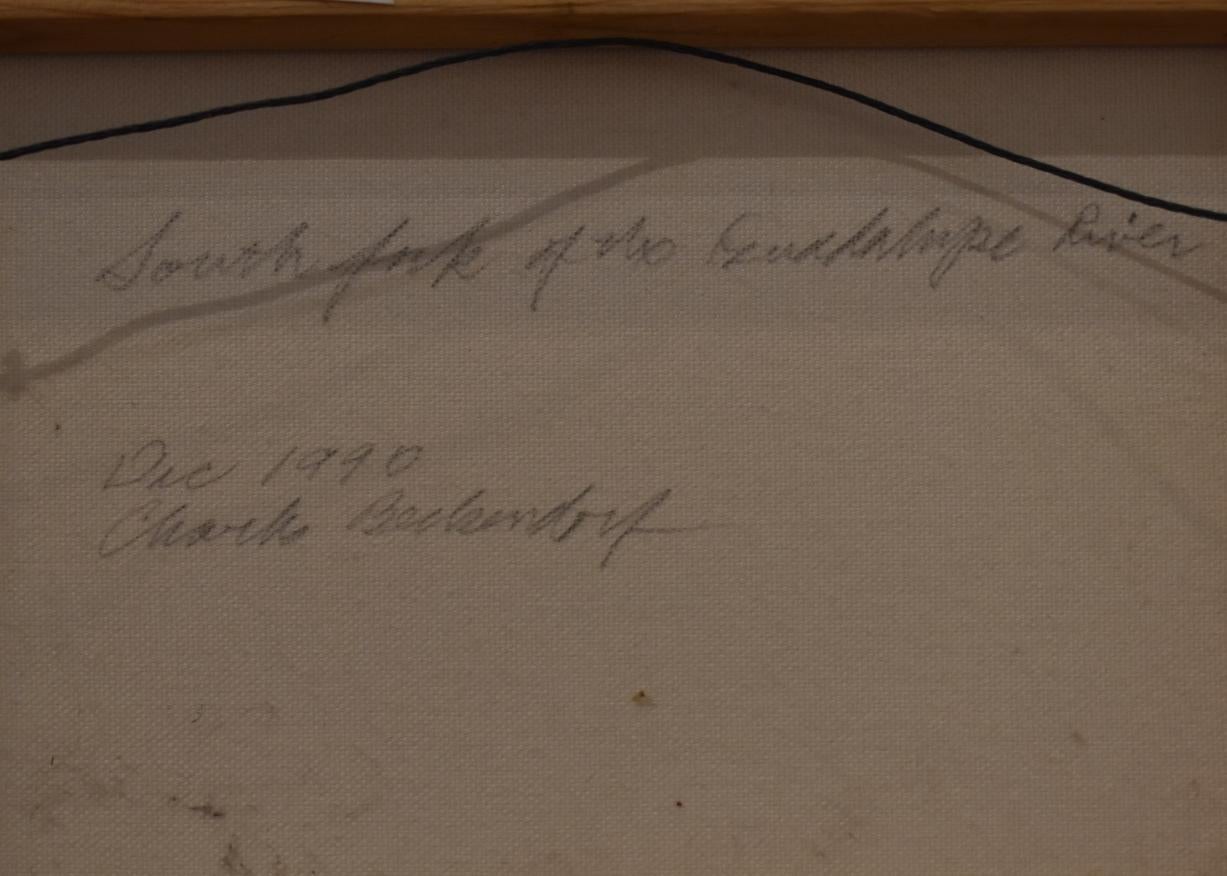 South fork of the Guadalupe River
Dec 1990
Charles Beckendorf